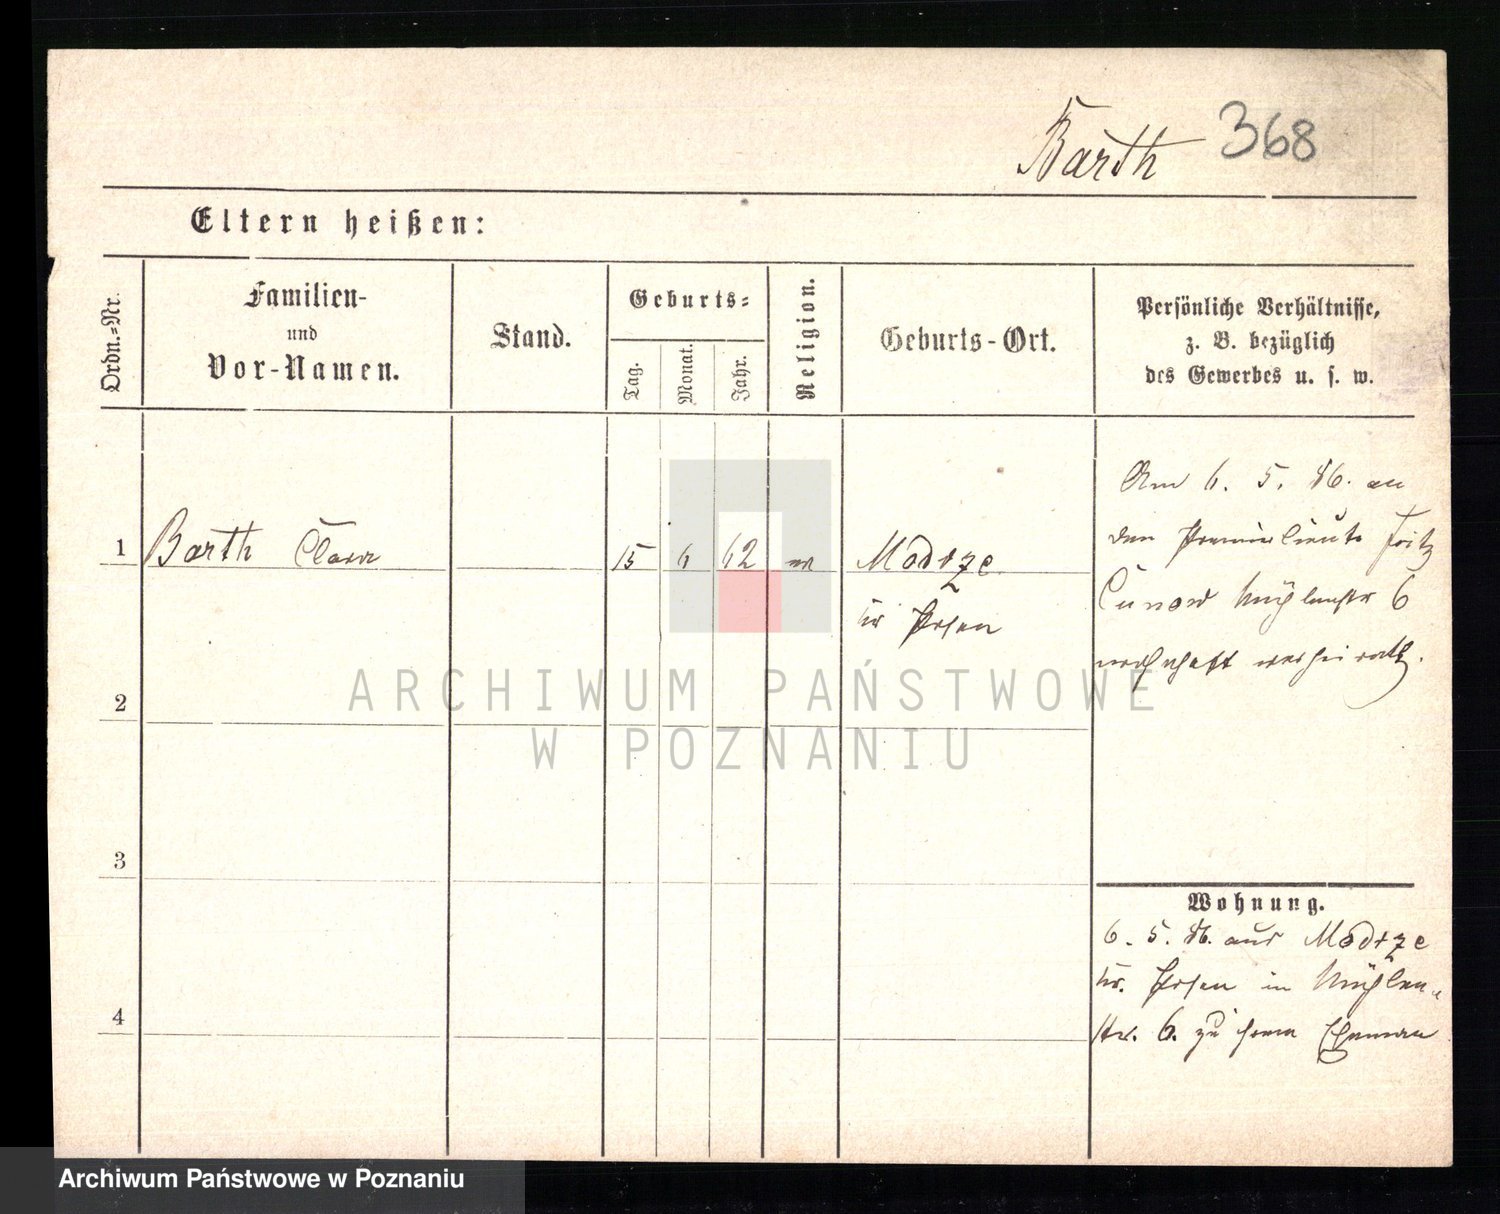 Barth 368
Eltern heißen:
Ordn.=Nr.
Familien-
und
Vor-Namen.
Stand.
Geburts=
Tag.
Monat.
Jahr.
Religion.
Geburts-Ort.
Persönliche Verhältnisse,
z. B. bezüglich
des Gewerbes u. s. w.
1 Barth Clara 15 6 62 Modrze
Kr Posen
Am 6. 5. 86. an
den Premierlieute Fritz
Cunow Mühlenstr 6
wohnhaft verheirath.
2
3
4
Wohnung.
6. 5. 86. aus Modrze
Kr. Posen in Mühlen-
str. 6. zu ihrem Ehemann
ARCHIWUM PAŃSTWOWE
W POZNANIU
Archiwum Państwowe w Poznaniu